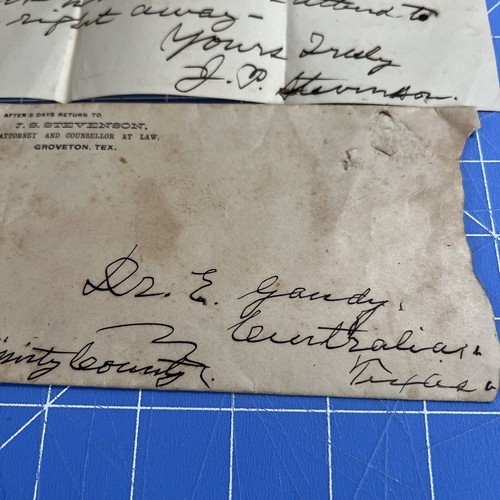 attend to
right away -
Yours Truly
J. S. Stevenson.
AFTER 5 DAYS RETURN TO
J. S. STEVENSON,
ATTORNEY AND COUNSELLOR AT LAW,
GROVETON, TEX.
Dr. E. Gandy,
Centralia,
Texas.
County